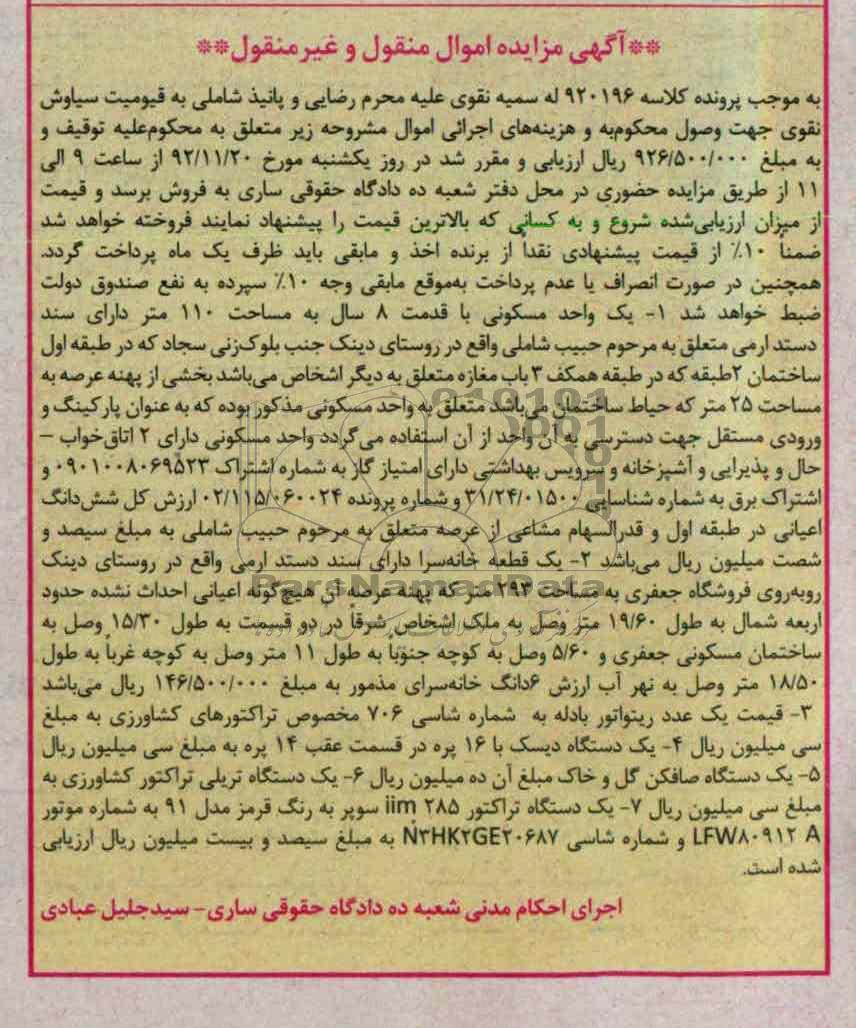 **آگهی مزایده اموال منقول و غیرمنقول**
به موجب پرونده کلاسه ۹۲۰۱۹۶ له سمیه نقوی علیه محرم رضایی و پانیذ شاملی به قیومیت سیاوش
نقوی جهت وصول محکوم‌به و هزینه‌های اجرائی اموال مشروحه زیر متعلق به محکوم‌علیه توقیف و
به مبلغ ۹۲۶/۵۰۰/۰۰۰ ریال ارزیابی و مقرر شد در روز یکشنبه مورخ ۹۲/۱۱/۲۰ از ساعت ۹ الی
۱۱ از طریق مزایده حضوری در محل دفتر شعبه ده دادگاه حقوقی ساری به فروش برسد و قیمت
از میزان ارزیابی‌شده شروع و به کسانی که بالاترین قیمت را پیشنهاد نمایند فروخته خواهد شد
ضمناً ۱۰٪ از قیمت پیشنهادی نقداً از برنده اخذ و مابقی باید ظرف یک ماه پرداخت گردد.
همچنین در صورت انصراف یا عدم پرداخت به‌موقع مابقی وجه ۱۰٪ سپرده به نفع صندوق دولت
ضبط خواهد شد ۱- یک واحد مسکونی با قدمت ۸ سال به مساحت ۱۱۰ متر دارای سند
دستد ارمی متعلق به مرحوم حبیب شاملی واقع در روستای دینک جنب بلوک‌زنی سجاد که در طبقه اول
ساختمان ۲طبقه که در طبقه همکف ۳ باب مغازه متعلق به دیگر اشخاص می‌باشد بخشی از پهنه عرصه به
مساحت ۲۵ متر که حیاط ساختمان می‌باشد متعلق به واحد مسکونی مذکور بوده که به عنوان پارکینگ و
ورودی مستقل جهت دسترسی به آن واحد از آن استفاده می‌گردد واحد مسکونی دارای ۲ اتاق‌خواب –
حال و پذیرایی و آشپزخانه و سرویس بهداشتی دارای امتیاز گاز به شماره اشتراک ۰۹۰۱۰۰۸۰۶۹۵۲۳ و
اشتراک برق به شماره شناسایی ۳۱/۲۴/۰۱۵۰۰ و شماره پرونده ۰۲/۱۱۵/۰۶۰۰۲۴ ارزش کل شش‌دانگ
اعیانی در طبقه اول و قدرالسهام مشاعی از عرصه متعلق به مرحوم حبیب شاملی به مبلغ سیصد و
شصت میلیون ریال می‌باشد ۲- یک قطعه خانه‌سرا دارای سند دستد ارمی واقع در روستای دینک
روبه‌روی فروشگاه جعفری به مساحت ۲۹۳ متر که پهنه عرصه آن هیچ‌گونه اعیانی احداث نشده حدود
اربعه شمال به طول ۱۹/۶۰ متر وصل به ملک اشخاص شرقاً در دو قسمت به طول ۱۵/۳۰ وصل به
ساختمان مسکونی جعفری و ۵/۶۰ وصل به کوچه جنوباً به طول ۱۱ متر وصل به کوچه غرباً به طول
۱۸/۵۰ متر وصل به نهر آب ارزش ۶دانگ خانه‌سرای مذمور به مبلغ ۱۴۶/۵۰۰/۰۰۰ ریال می‌باشد
۳- قیمت یک عدد ریتواتور بادله به شماره شاسی ۷۰۶ مخصوص تراکتورهای کشاورزی به مبلغ
سی میلیون ریال ۴- یک دستگاه دیسک با ۱۶ پره در قسمت عقب ۱۴ پره به مبلغ سی میلیون ریال
۵- یک دستگاه صافکن گل و خاک مبلغ آن ده میلیون ریال ۶- یک دستگاه تریلی تراکتور کشاورزی به
مبلغ سی میلیون ریال ۷- یک دستگاه تراکتور ۲۸۵ iim سوپر به رنگ قرمز مدل ۹۱ به شماره موتور
LFW۸۰۹۱۲ A و شماره شاسی N۳HK۲GE۲۰۶۸۷ به مبلغ سیصد و بیست میلیون ریال ارزیابی
شده است.
اجرای احکام مدنی شعبه ده دادگاه حقوقی ساری- سیدجلیل عبادی
ParsNamadData